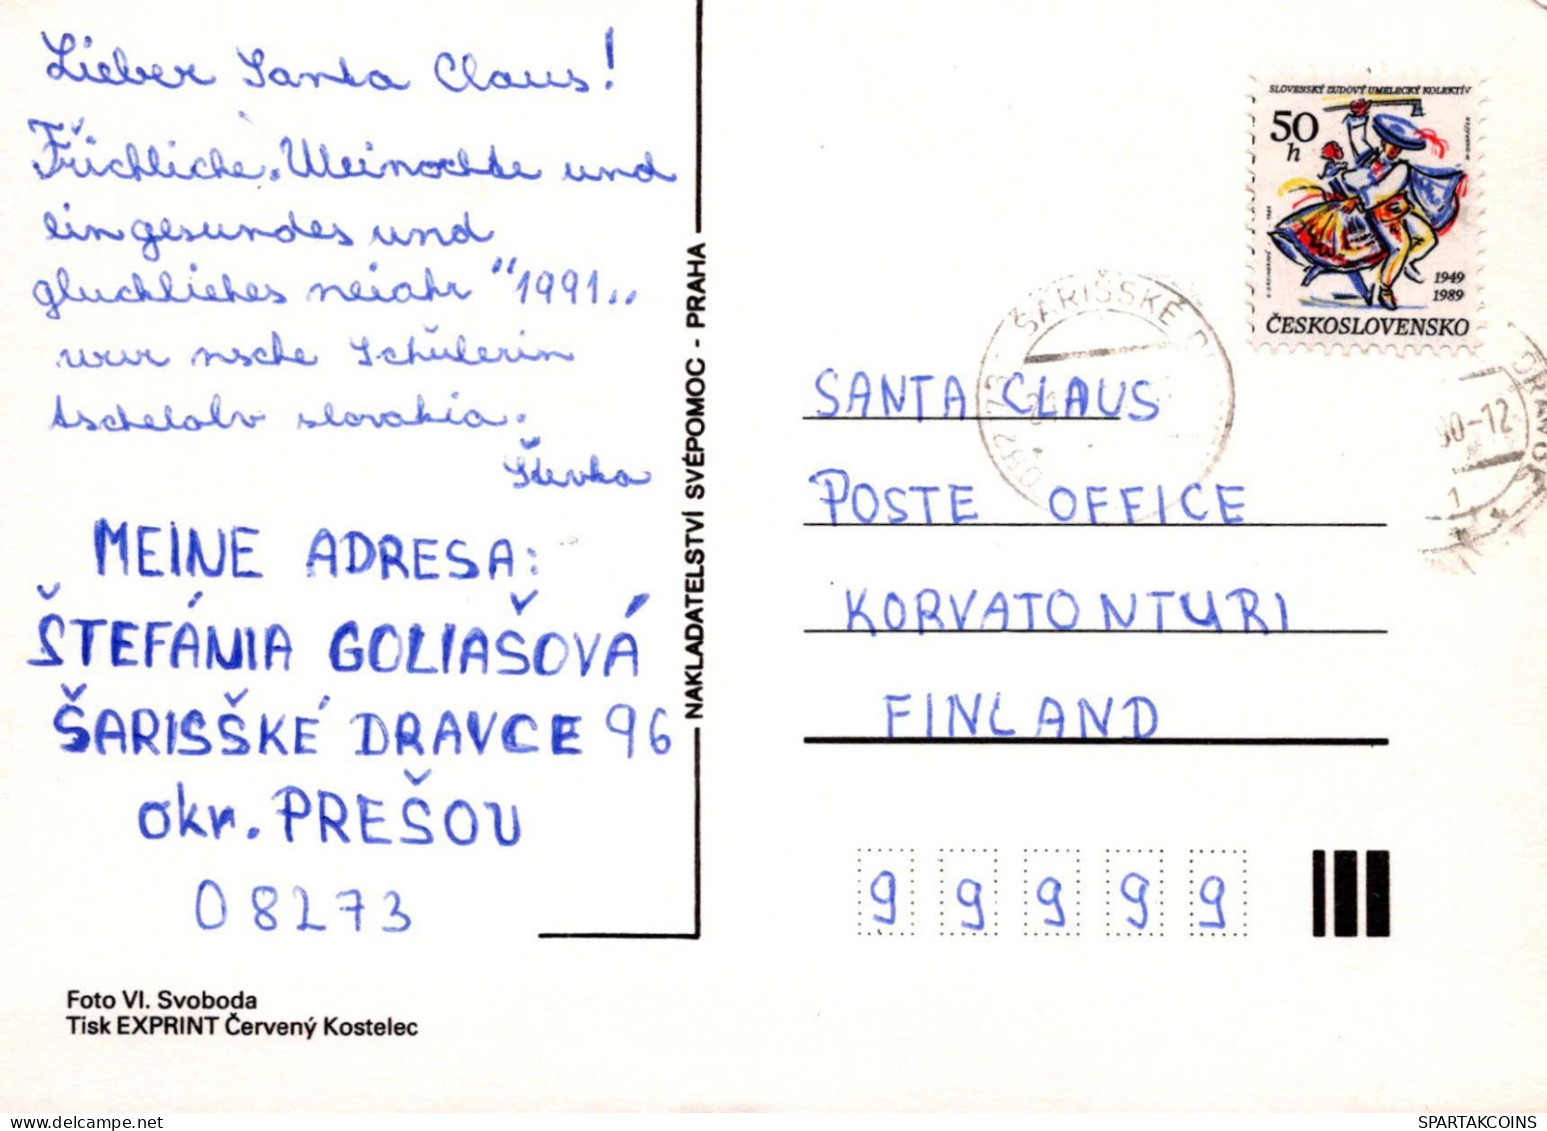 Lieber Santa Claus!
Früchliche. Weinochte und
ein gesundes und
gluckliches neiahr "1991..
wur nsche Schülerin
tschelolv slovakia.
Števka
MEINE ADRESA:
ŠTEFÁNIA GOLIAŠOVÁ
ŠARISŠKÉ DRAVCE 96
okr. PREŠOU
08273
Foto Vl. Svoboda
Tisk EXPRINT Červený Kostelec
NAKLADATELSTVÍ SVÉPOMOC - PRAHA
SLOVENSKÝ ĽUDOVÝ UMELECKÝ KOLEKTÍV
50
h
1949
1989
ČESKOSLOVENSKO
ŠARIŠSKÉ
082 73
90-12
1
SANTA CLAUS
POSTE OFFICE
KORVATONTURI
FINLAND
9 9 9 9 9
SPARTAKCOINS